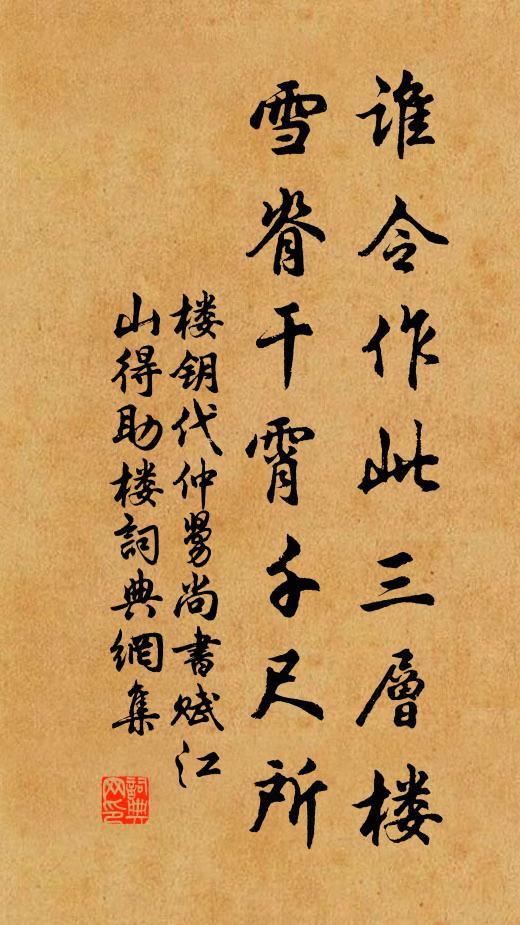 谁令作此三層楼
雪脊干霄千尺所
楼钥代仲舅尚書赋江
山得助楼詞典網集
詞典网印